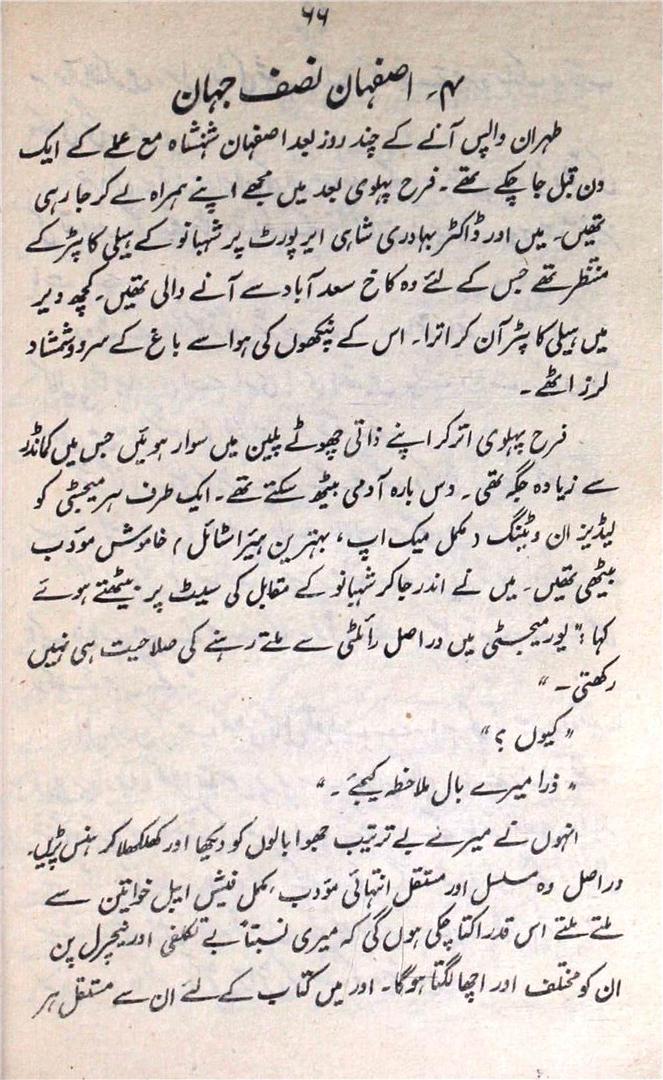 ۶۶
۴۔ اصفہان نصف جہان
طہران واپس آنے کے چند روز بعد اصفہان شہنشاہ مع عملے کے ایک
دن قبل جا چکے تھے۔ فرح پہلوی بعد میں مجھے اپنے ہمراہ لے کر جا رہی
تھیں۔ میں اور ڈاکٹر بہادری شاہی ایرپورٹ پر شہبانو کے ہیلی کاپٹر کے
منتظر تھے جس کے لئے وہ کاخ سعد آباد سے آنے والی تھیں۔ کچھ دیر
میں ہیلی کاپٹر آن کر اترا۔ اس کے پنکھوں کی ہوا سے باغ کے سرو و شمشاد
لرز اٹھے۔
فرح پہلوی اتر کر اپنے ذاتی چھوٹے پلین میں سوار ہوئیں جس میں کمانڈر
سے زیادہ جگہ تھی۔ دس بارہ آدمی بیٹھ سکتے تھے۔ ایک طرف ہر میجسٹی کو
لیڈیز ان ویٹنگ (مکمل میک اپ، بہترین ہیئر اسٹائل) خاموش مودب
بیٹھی تھیں۔ میں نے اندر جا کر شہبانو کے مقابل کی سیٹ پر بیٹھتے ہوئے
کہا: "یور میجسٹی میں دراصل رائلٹی سے ملتے رہنے کی صلاحیت ہی نہیں
رکھتی۔"
"کیوں؟"
"ذرا میرے بال ملاحظہ کیجئے۔"
انہوں نے میرے بے ترتیب جھوا بالوں کو دیکھا اور کھلکھلا کر ہنس پڑیں۔
دراصل وہ مسلسل اور مستقل انتہائی مودب، مکمل فیشن ایبل خواتین سے
ملتے ملتے اس قدر اکتا چکی ہوں گی کہ میری نسبتاً بے تکلفی اور نیچرل پن
ان کو مختلف اور اچھا لگتا ہوگا۔ اور میں کتاب کے لئے ان سے مستقل ہر